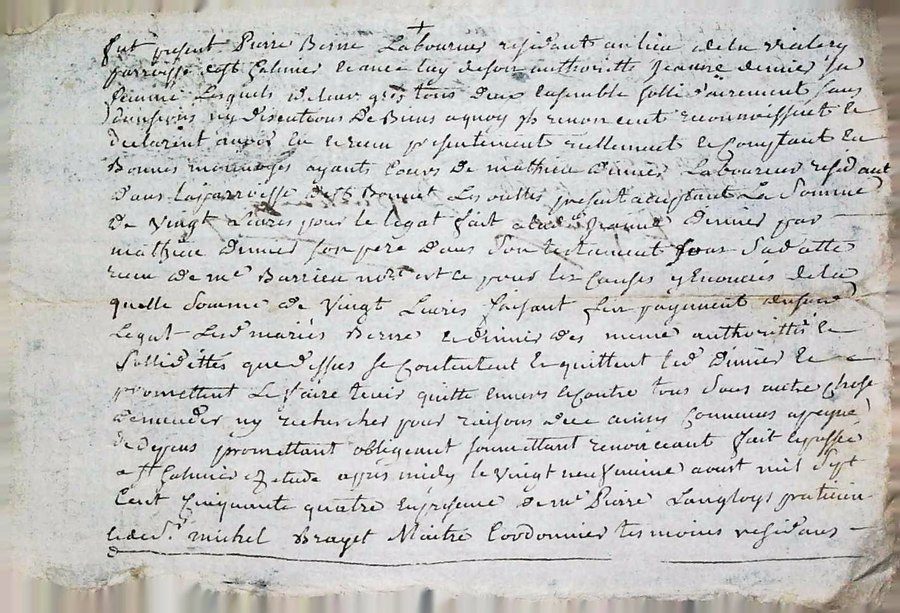 +
fut present Pierre Berne Laboureur residant au lieu de la
parroisse de st Galmier de luy deson authoritte Jeanne Dimier sa
femme Lesquels de leur gres tous deux Ensemble sollidairement sans
divisions ny discutions de Biens aquoy ils renoncent reconnoissent et
declarent avoir Eu et receu presentement reellement et Comptant En
Bonnes monnoyes ayants Cours de mathieu Dimier Laboureur residant
dans la parroisse de st Bonnet Les oulles present acceptant La Somme
De Vingt Livres pour le legat fait a lad. Jeanne Dimier par
mathieu Dimier son pere dans son testament sous sa datte
receu de me Barrieu nore et ce pour les Causes y Enoncées de la
quelle Somme de Vingt Livres faisant fin payement dud
Legat Lesd mariés Berne et Dimier des meme authorittés et
sollidittés que dessus se Contentent et quittent led Dimier et
promettent Le faire tenir quitte envers et Contre tous sans autre chose
demander ny rechercher pour raisons de ce ainsy Convenus
promettant obligeant soumettant renonceant fait et passé
a st Galmier Etude après midy le Vingt neufvieme aoust mil sept
Cent Cinquante quatre En presence de me Pierre Langloys praticien
et de sr michel Brayet Maitre Cordonnier temoins residans